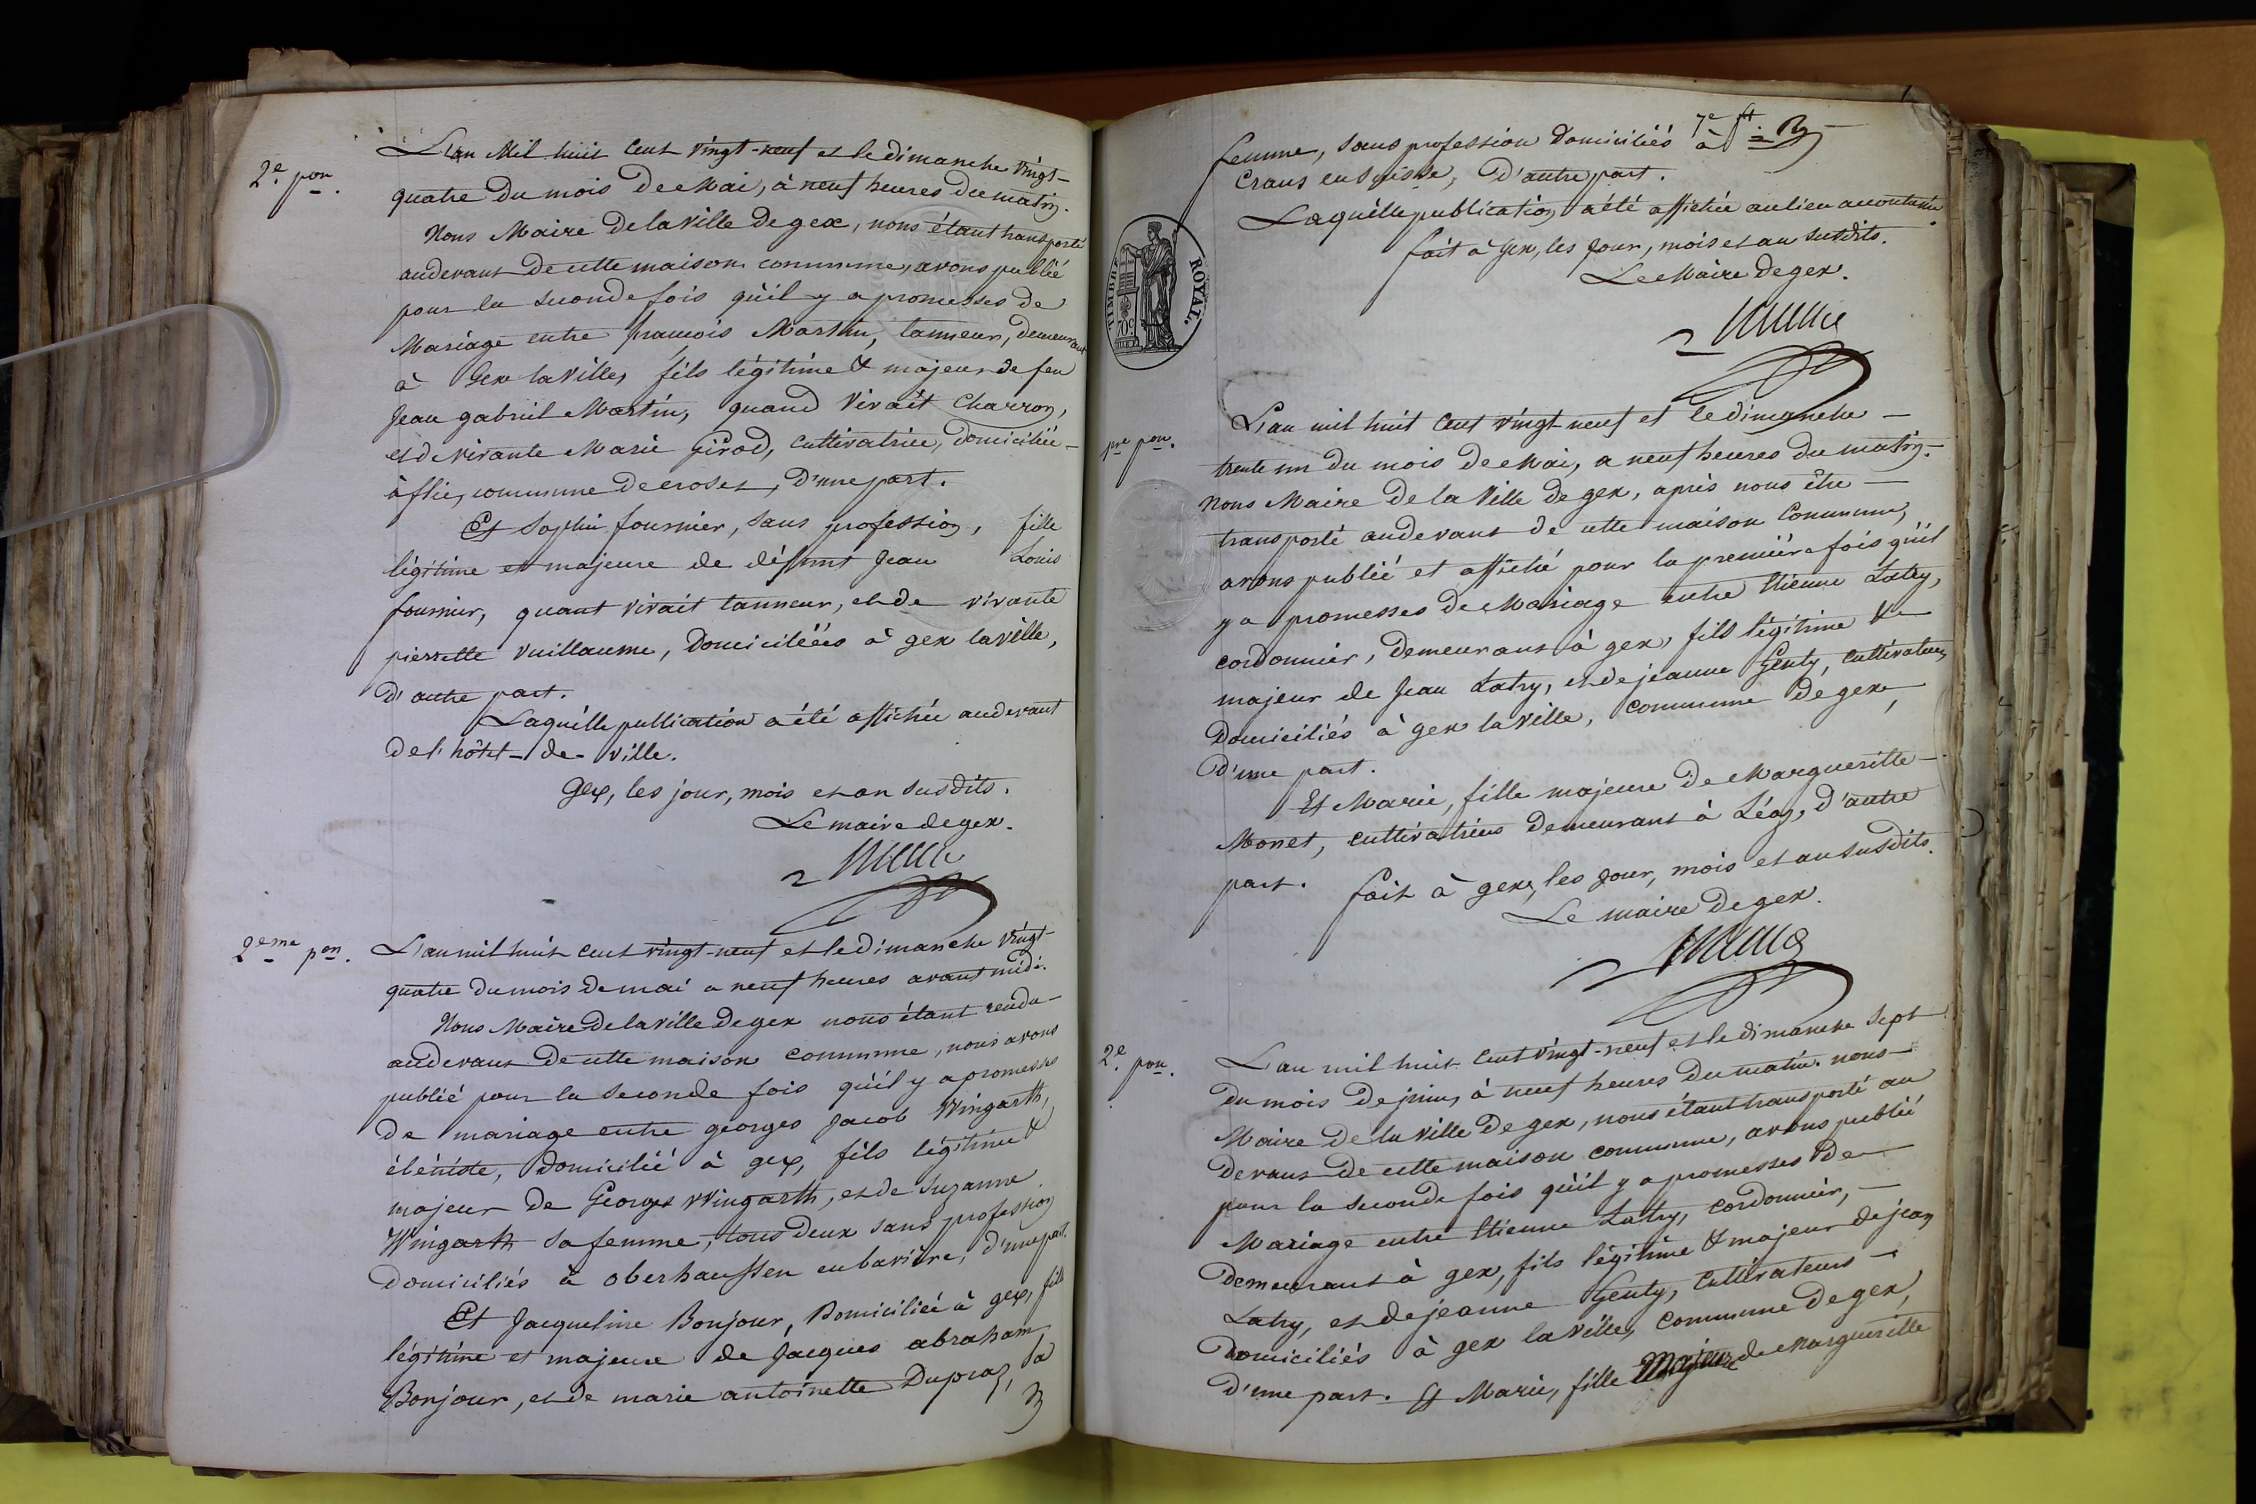 2e. pon.
L'an Mil huit Cent vingt-neuf et le dimanche vingt-
quatre du mois de Mai, à neuf heures du matin.
Nous Maire de la ville de gex, nous étant transporté
au devant de cette maison commune, avons publié
pour la seconde fois qu'il y a promesses de
Mariage entre françois Martin, tanneur, demeurant
à Gex la Ville, fils légitime & majeur de feu
Jean gabriel Martin, quand Vivait Charron,
et de vivante Marie Girod, cultivatrice, domiciliée -
à flies, commune de crozet, D'une part.
Et Sophie fournier, sans profession, fille
légitime et majeure de défunt Jean Louis
fournier, quant vivait tanneur, et de vivante
pierrette Vuillaume, Domiciliées à gex la ville,
D'autre part.
Laquelle publication a été affichée au devant
de l'hôtel-de-Ville.
Gex, les jour, mois et an susdits.
Le maire de gex.
2eme pon.
L'an mil huit cent vingt-neuf et le dimanche vingt
quatre du mois de mai a neuf heures avant midi.
Nous Maire de la ville de gex nous étant rendu
au devant de cette maison commune, nous avons
publié pour la seconde fois qu'il y a promesses
de mariage entre georges Jacob Wingarth,
ébéniste, domicilié à gex, fils légitime &
majeur de Georges Wingarth, et de Suzanne
Wingarth sa femme, tous deux sans profession
domiciliés à oberhaussen en bavière, d'une part.
Et Jacqueline Bonjour, Domiciliée à gex, fille
légitime et majeure de Jacques abraham
Bonjour, et de marie antoinette Dupraz, sa
7e ft
femme, sans profession domiciliés à
Crans en Suisse, D'autre part.
Laquelle publication a été affichée au lieu accoutumé.
fait à Gex, les jour, mois et an susdits.
Le Maire de gex.
TIMBRE ROYAL.
70c
pre pon.
L'an mil huit Cent vingt neuf et le dimanche -
trente un du mois de Mai, a neuf heures du matin -
Nous Maire de la Ville de gex, après nous être -
transporté au devant de cette maison Commune,
avons publié et affiché pour la première fois qu'il
y a promesses de Mariage entre Etienne Latry,
cordonnier, demeurant à gex, fils légitime &
majeur de Jean Latry, et de jeanne Genty, cultivateurs
Domiciliés à gex la Ville, commune de gex,
D'une part.
Et Marie, fille majeure de Marguerite -
Monet, cultivatrices demeurant à Léaz, d'autre
part.
fait à gex, les jour, mois et an susdits.
Le maire de gex.
2e. pon.
L'an mil huit Cent vingt-neuf et le dimanche sept
du mois de juin, à neuf heures du matin. nous -
Maire de la Ville de gex, nous étant transporté au
devant de cette maison commune, avons publié
pour la seconde fois qu'il y a promesses de -
Mariage entre Etienne Latry, cordonnier, -
demeurant à gex, fils légitime & majeur de jean
Latry, et de jeanne Genty, Cultivateurs -
Domiciliés à gex la Ville, commune de gex,
d'une part. Et Marie, fille Majeure de Marguerite